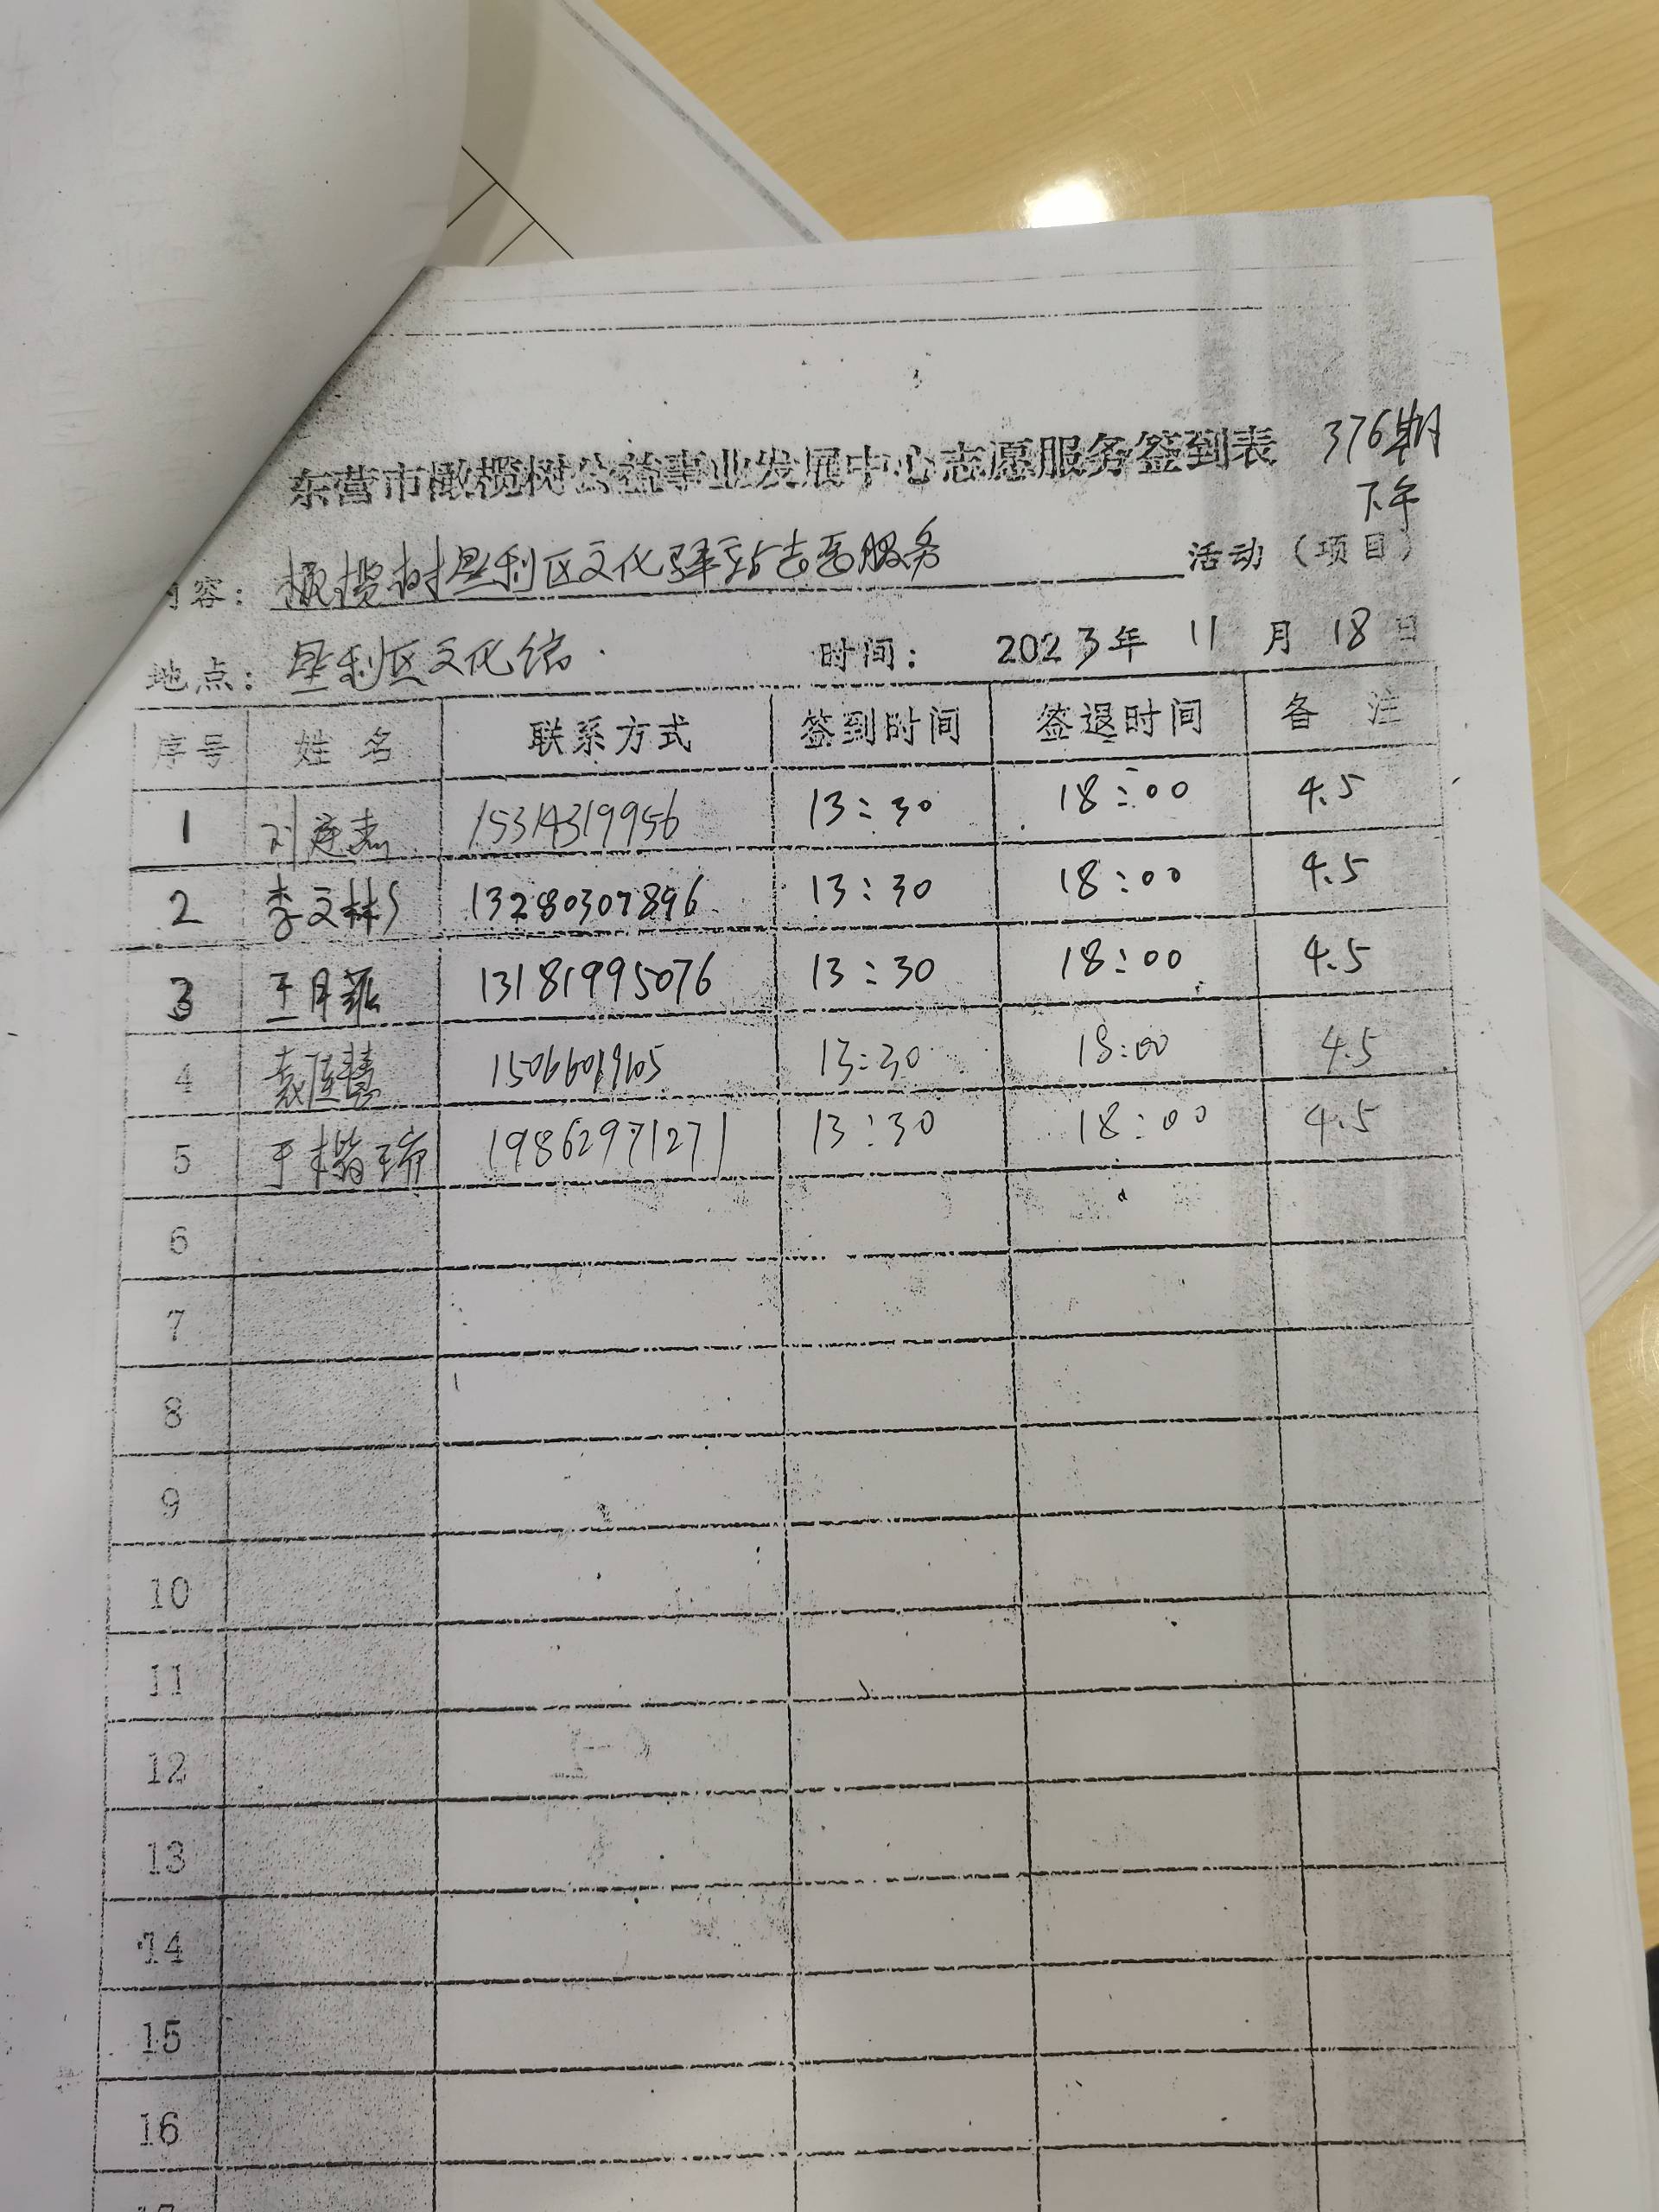 东营市橄榄树公益事业发展中心志愿服务签到表 376期
下午
内容：橄榄树垦利区文化驿站志愿服务 活动（项目）
地点：垦利区文化馆 时间： 2023年 11 月 18 日
序号 姓 名 联系方式 签到时间 签退时间 备 注
1 刘建志 15314319956 13:30 18:00 4.5
2 李文彬 13280307896 13:30 18:00 4.5
3 王月 13181995076 13:30 18:00 4.5
4 袁 慧 13:30 18:00 4.5
5 于楷瑞 19862971271 13:30 18:00 4.5
6
7
8
9
10
11
12
13
14
15
16
17